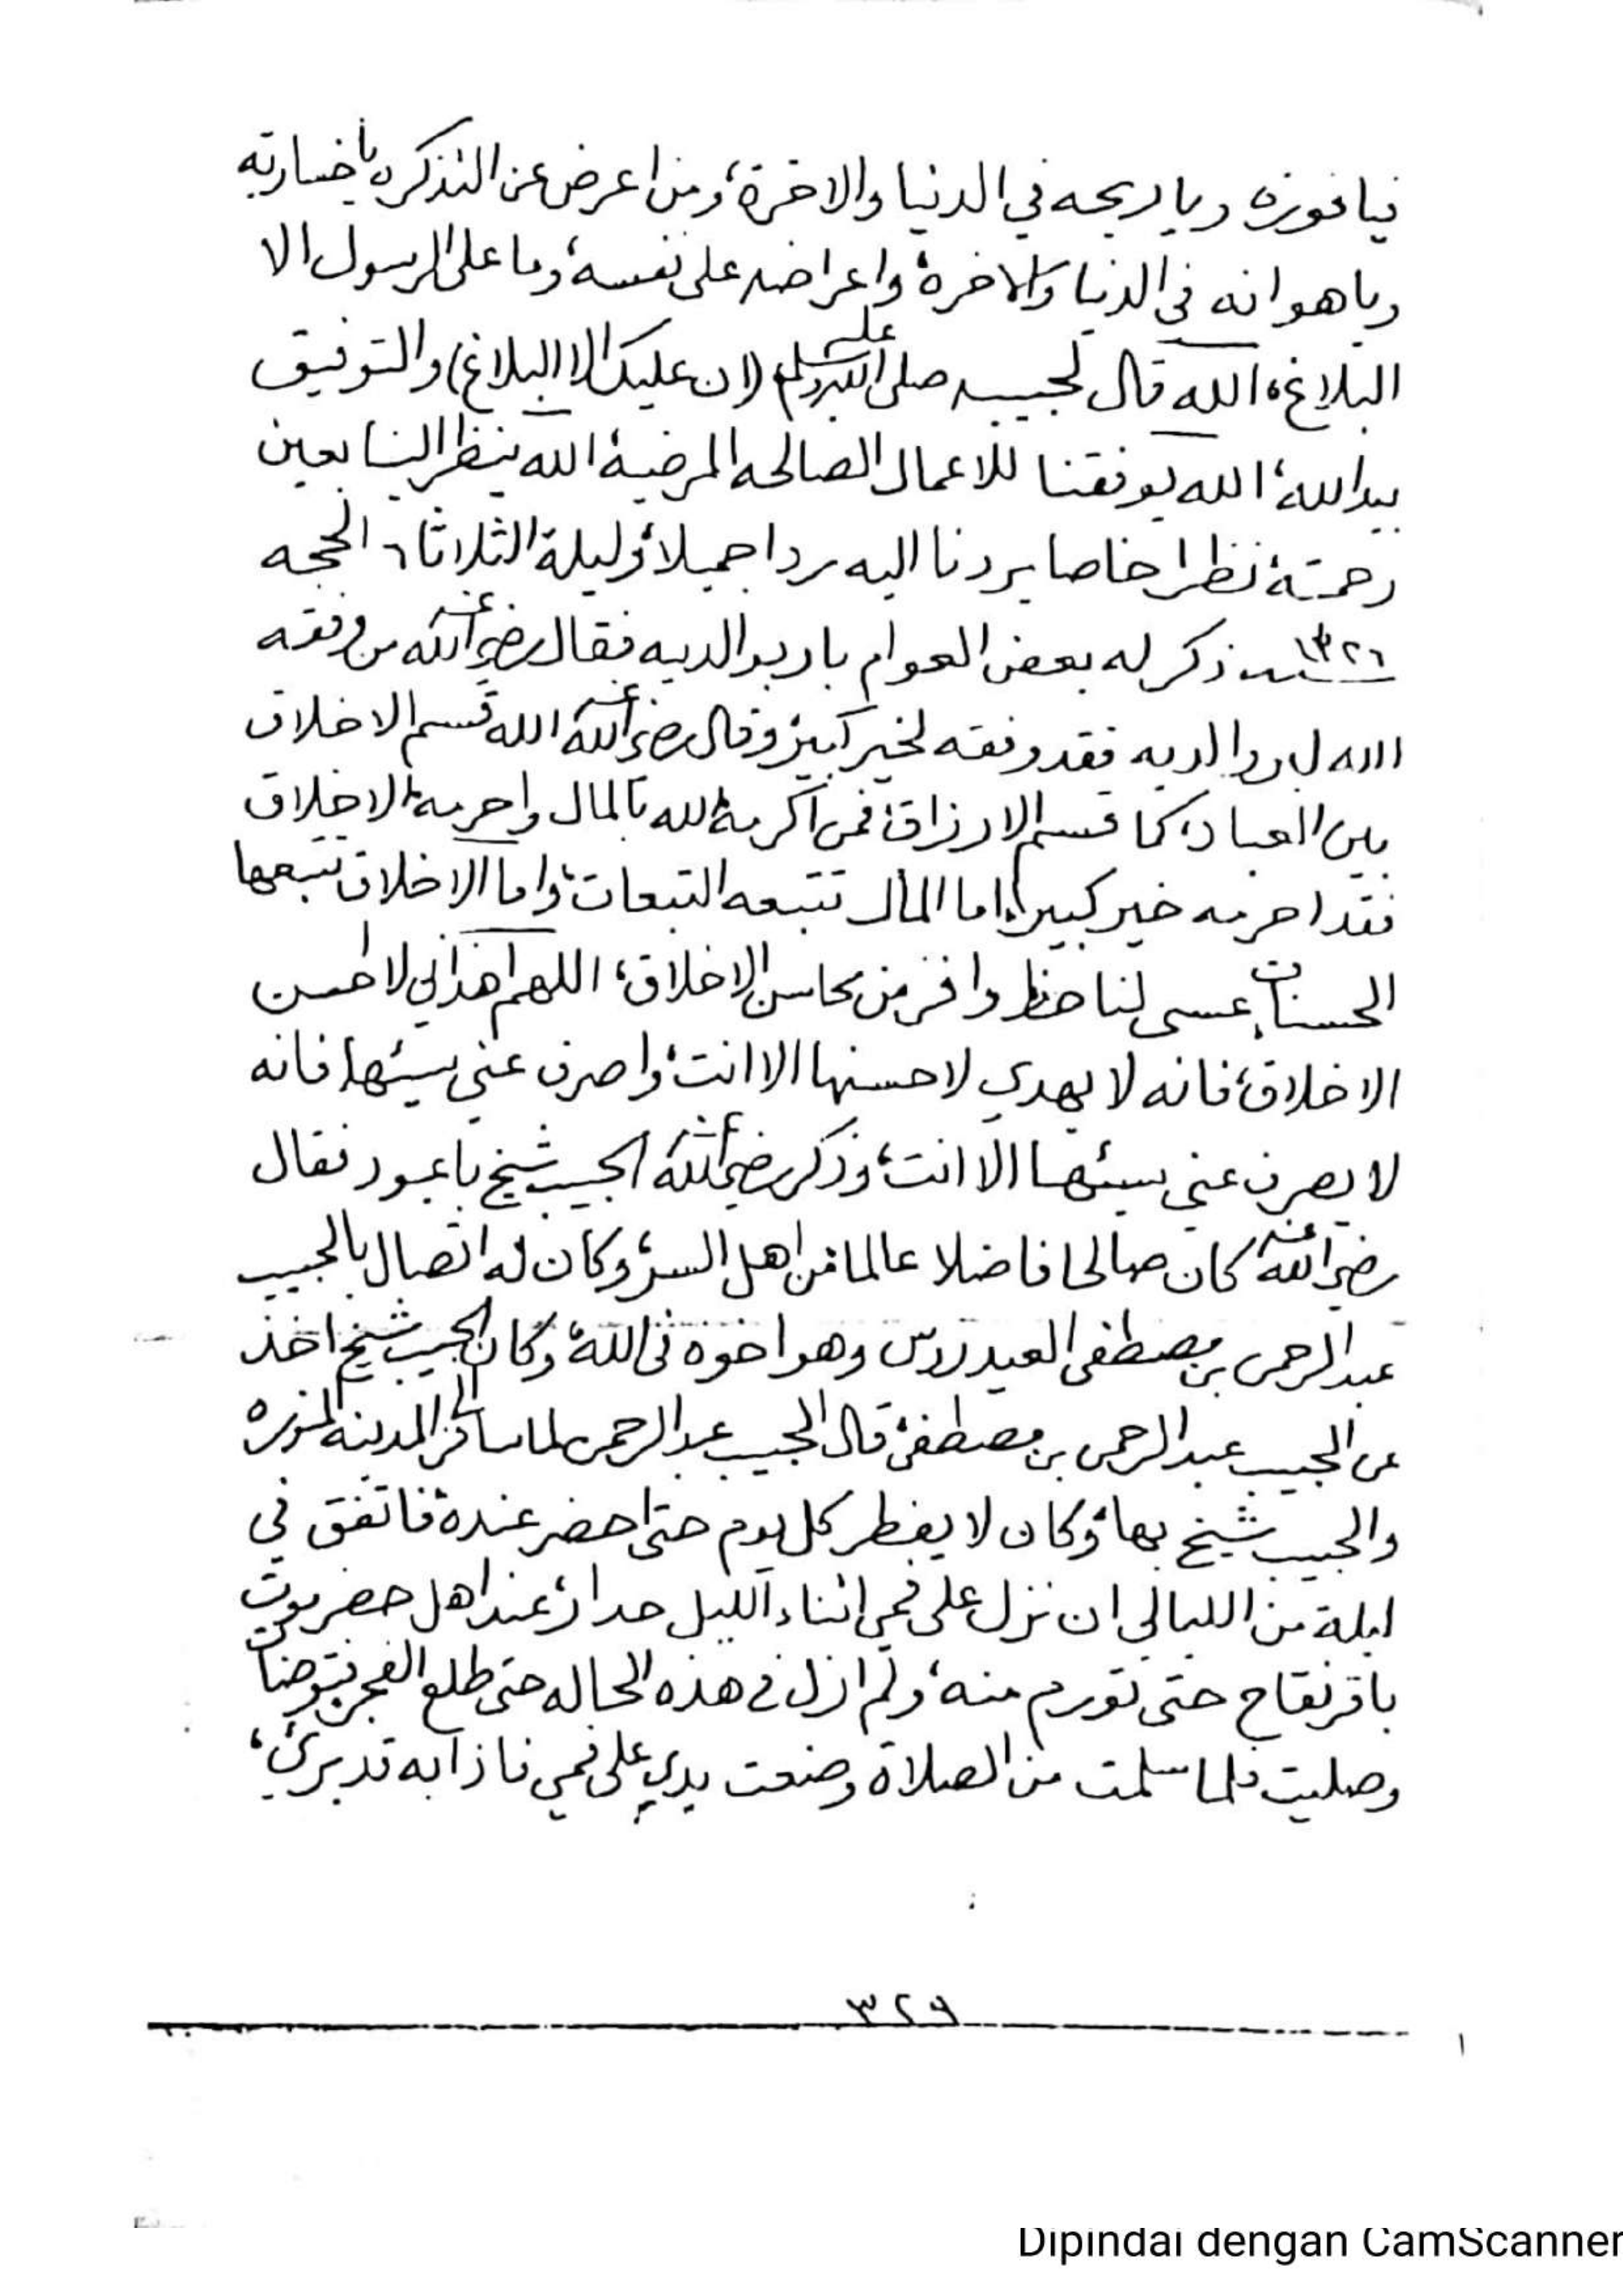 فيا فوزه ويا ربحه في الدنيا والاخرة، ومن اعرض عن التذكره يا خسارته
ويا هوانه في الدنيا والاخرة، واعراضه على نفسه، وما على الرسول الا
البلاغ، الله قال لحبيبه صلى الله عليه وسلم (ان عليك الا البلاغ) والتوفيق
بيد الله، الله يوفقنا للاعمال الصالحه المرضية، الله ينظر الينا بعين
رحمته، نظرا خاصا يردنا اليه ردا جميلا، وليلة الثلاثا ٦ الحجه
سنة ١٣٢٦ ذكر له بعض العوام بار بوالديه فقال رضي الله عنه من وفقه
الله لبر والديه فقد وفقه لخير كبير، وقال رضي الله عنه الله قسم الاخلاق
بين العباد، كما قسم الارزاق، فمن اكرمه الله بالمال واحرمه الاخلاق
فقد احرمه خير كبير، اما المال تتبعه التبعات، واما الاخلاق تتبعها
الحسنات، عسى لنا حظ وافر من محاسن الاخلاق، اللهم اهدني لاحسن
الاخلاق، فانه لا يهدي لاحسنها الا انت، واصرف عني سيئها فانه
لا يصرف عني سيئها الا انت، وذكر رضي الله عنه الحبيب شيخ باعبود فقال
رضي الله عنه كان صالحا فاضلا عالما من اهل السر، وكان له اتصال بالحبيب
عبدالرحمن بن مصطفى العيدروس وهو اخوه في الله، وكان الحبيب شيخ اخذ
عن الحبيب عبدالرحمن بن مصطفى، قال الحبيب عبدالرحمن لما سافر الى المدينه المنوره
والحبيب شيخ بها، وكان لا يفطر كل يوم حتى احضر عنده، فاتفق في
ليلة من الليالي ان نزل على فمي اثناء الليل حدار، عند اهل حضرموت
باقرنقاح حتى تورم منه، ولم ازل في هذه الحاله حتى طلع الفجر فتوضأت
وصليت فلما سلمت من الصلاة وضعت يدي على فمي فاذا به قد برئ،
٣٢٩
Dipindai dengan CamScanner